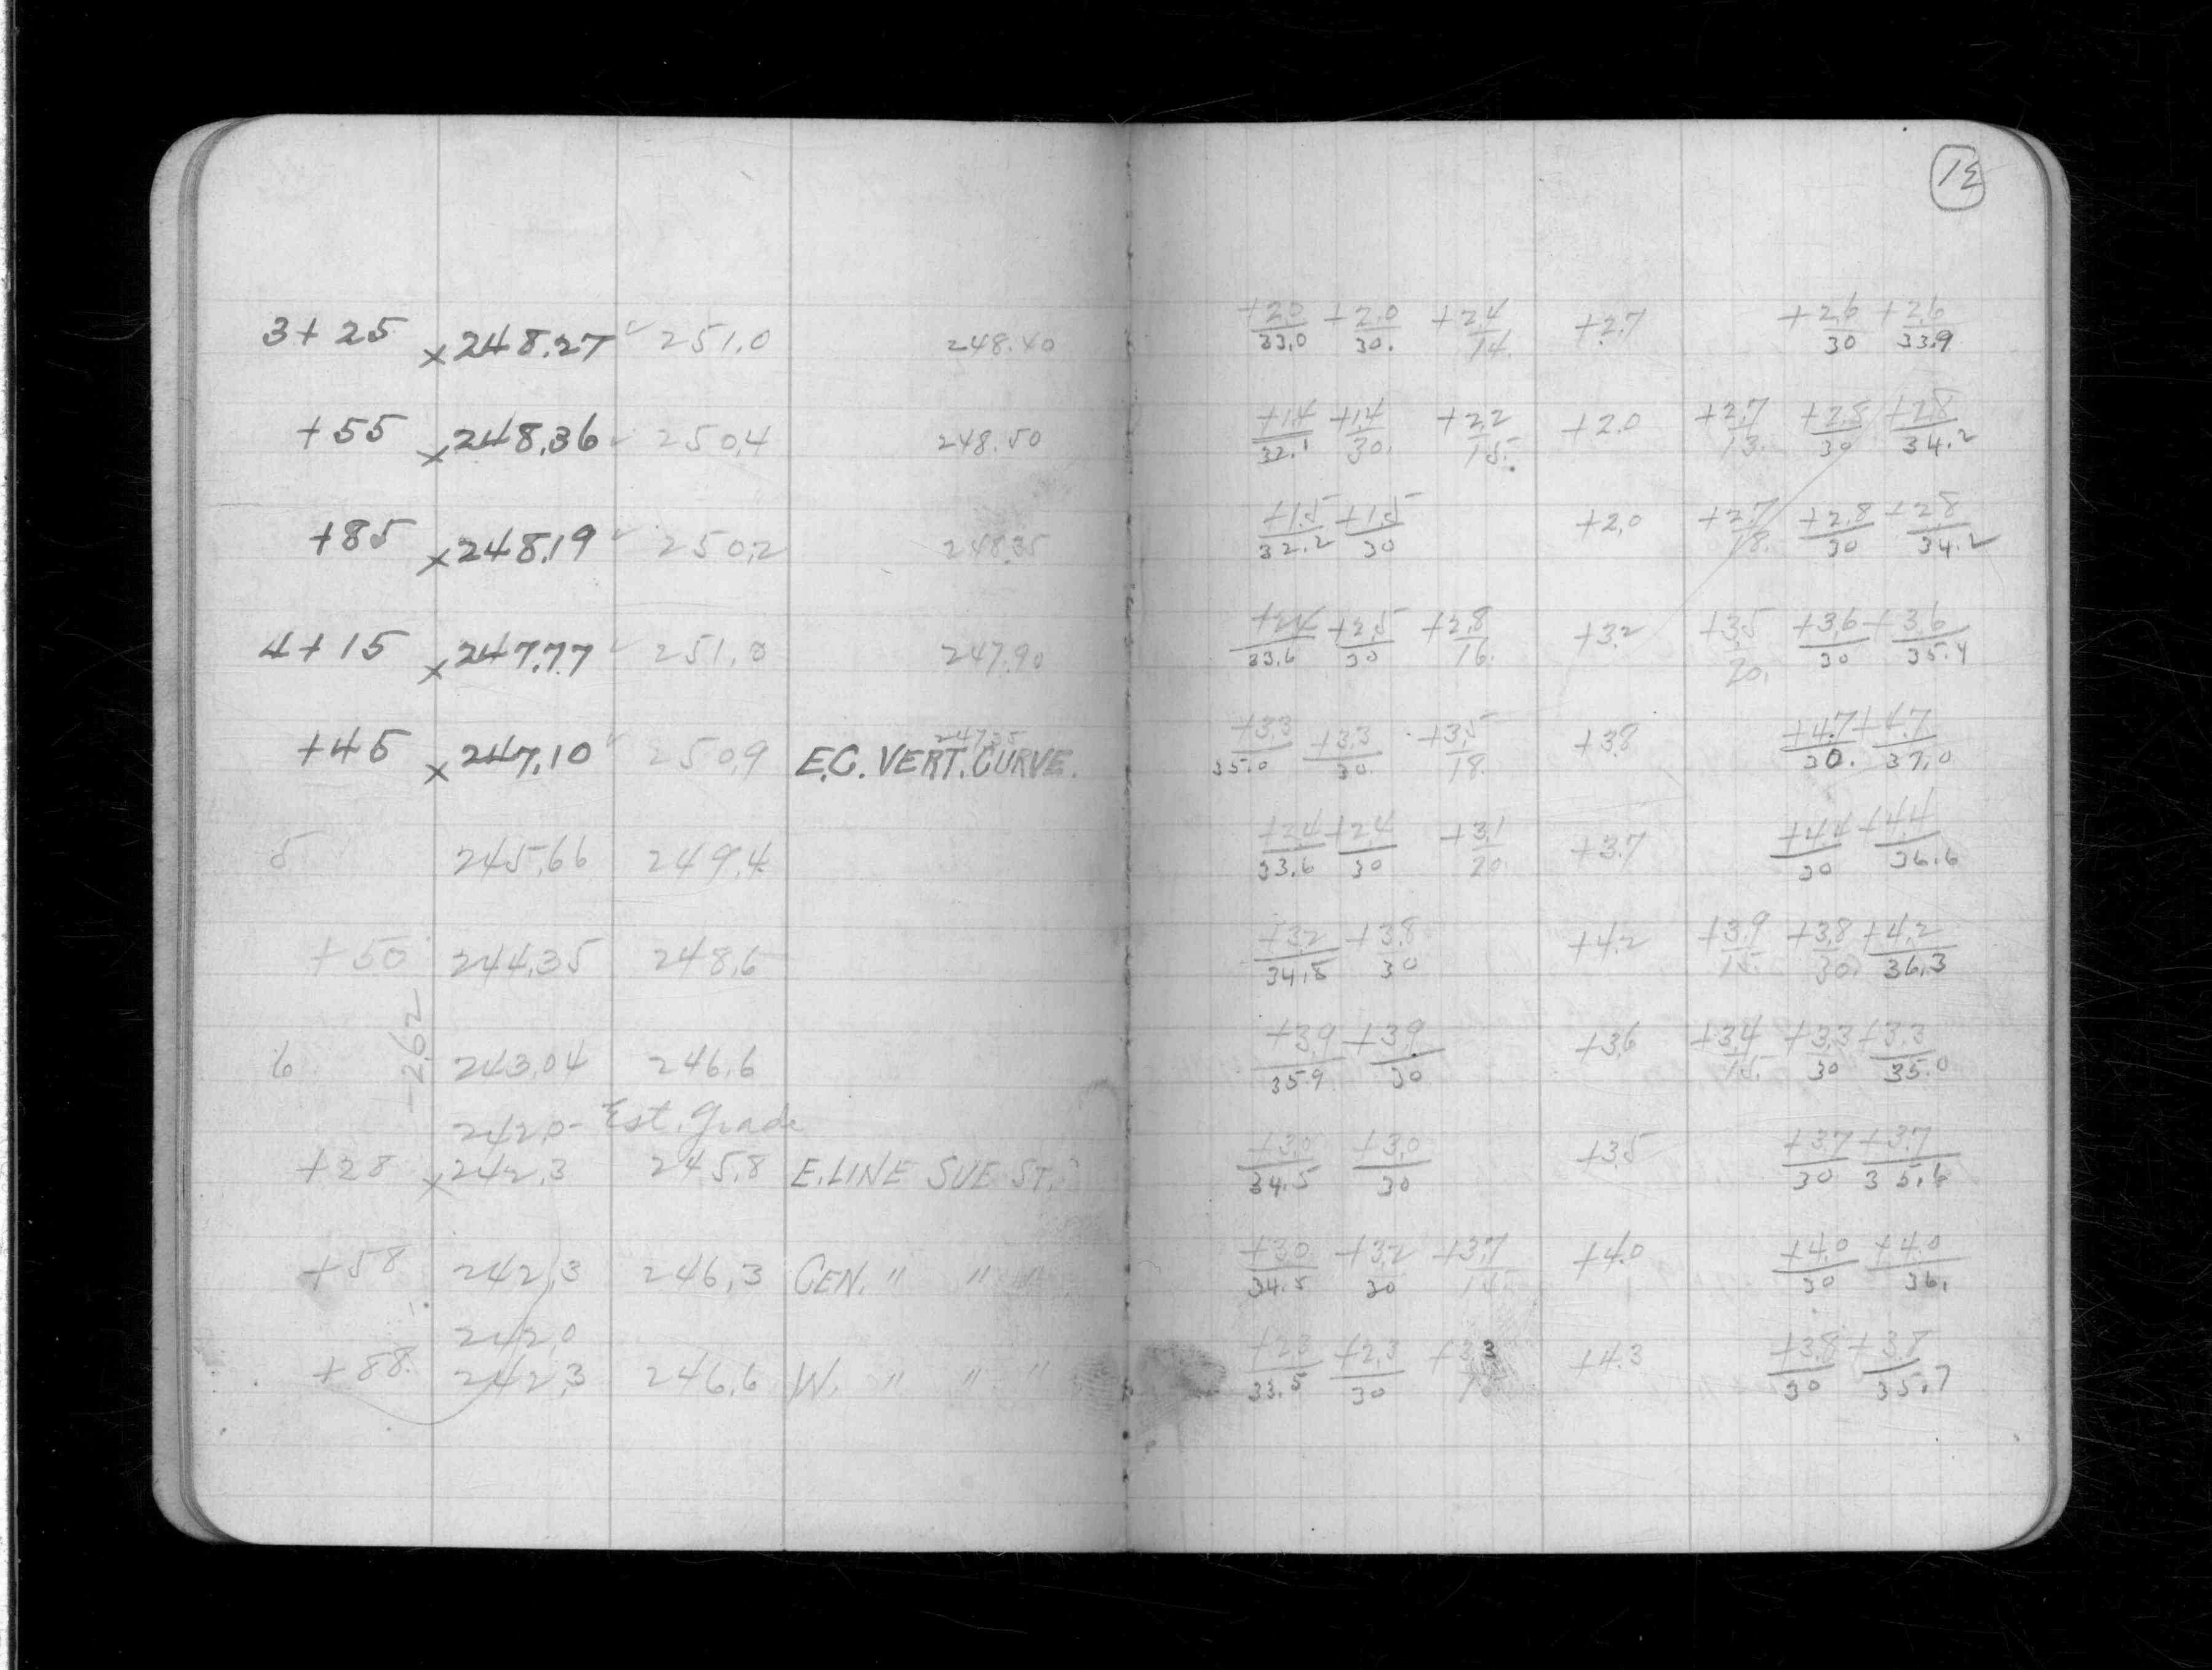 3+25 x 248.27 ✓ 251.0 248.40 +2.0/33.0 +2.0/30. +2.4/14. +2.7 +2.6/30 +2.6/33.9
+55 x 248.36 ✓ 250.4 248.50 +1.4/32.1 +1.4/30. +2.2/15. +2.0 +2.7/13. +2.8/30 +2.8/34.2
+85 x 248.19 ✓ 250.2 248.35 +1.5/32.2 +1.5/30 +2.0 +2.7/18. +2.8/30 +2.8/34.2
4+15 x 247.77 ✓ 251.0 247.90 +2.4/33.6 +2.5/30 +2.8/16. +3.2 +3.5/20. +3.6/30 +3.6/35.4
247.35
+45 x 247.10 ✓ 250.9 E.C. VERT. CURVE. +3.3/35.0 +3.3/30. +3.5/18. +3.8 +4.7/30. +4.7/37.0
5 245.66 249.4 +2.4/33.6 +2.4/30 +3.1/20. +3.7 +4.4/30 +4.4/36.6
+50 244.35 248.6 +3.2/34.8 +3.8/30 +4.2 +3.9/15. +3.8/30. +4.2/36.3
-2.62
6 243.04 246.6 +3.9/35.9 +3.9/30 +3.6 +3.4/15. +3.3/30 +3.3/35.0
242.0- Est. Grade
+28 x 242.3 245.8 E. LINE SUE ST. +3.0/34.5 +3.0/30 +3.5 +3.7/30 +3.7/35.6
+58 242.3 246.3 CEN. " " " +3.0/34.5 +3.2/30 +3.7/15. +4.0 +4.0/30 +4.0/36.
242.0
+88. 242.3 246.6 W. " " " +2.3/33.5 +2.3/30 +4.3 +3.8/30 +3.8/35.7